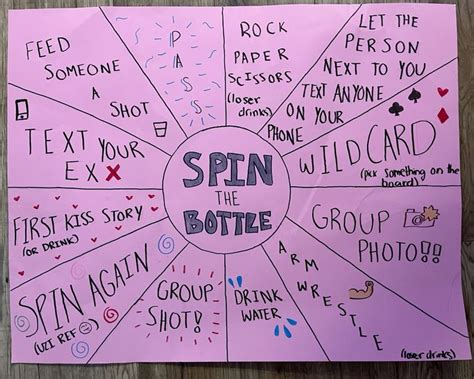 FEED
SOMEONE
A
SHOT
PASS
ROCK
PAPER
SCISSORS
(loser
drinks)
LET THE
PERSON
NEXT TO YOU
TEXT ANYONE
ON YOUR
PHONE
WILD CARD
(pick something on the
board)
GROUP
PHOTO!!
ARM WRESTLE
(loser drinks)
DRINK
WATER
GROUP
SHOT!
SPIN AGAIN
(UZI REF)
FIRST KISS STORY
(OR DRINK)
TEXT YOUR
EX
SPIN
THE
BOTTLE